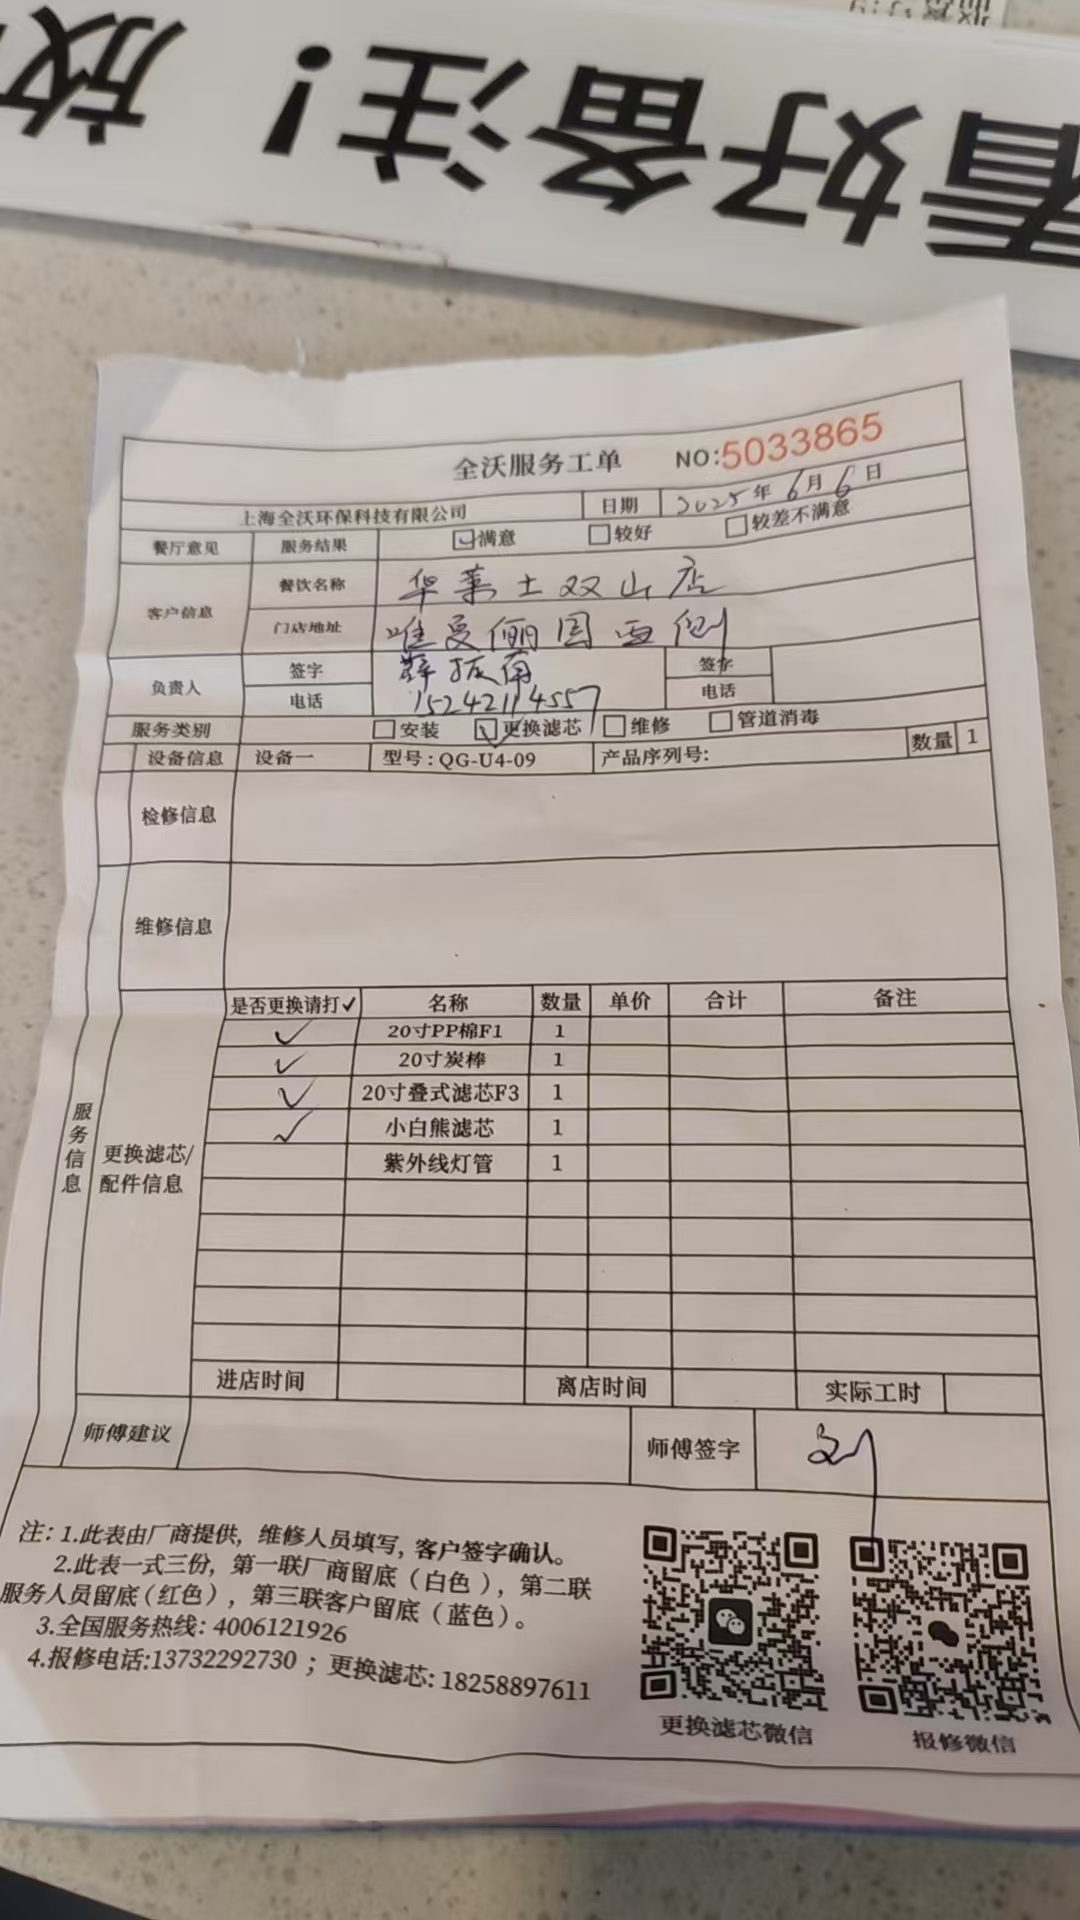 放！注备好看
全沃服务工单 NO:5033865
上海全沃环保科技有限公司 日期 2025年6月6日
餐厅意见 服务结果 ☑满意 □较好 □较差不满意
客户信息 餐饮名称 华莱士双山店
门店地址 唯曼俪国西侧
负责人 签字 薛振 签字
电话 15242114557 电话
服务类别 □安装 ☑更换滤芯 □维修 □管道消毒
设备信息 设备一 型号:QG-U4-09 产品序列号: 数量 1
检修信息
维修信息
服务信息
更换滤芯/配件信息
是否更换请打✓ 名称 数量 单价 合计 备注
✓ 20寸PP棉F1 1
✓ 20寸炭棒 1
✓ 20寸叠式滤芯F3 1
✓ 小白熊滤芯 1
紫外线灯管 1
进店时间 离店时间 实际工时
师傅建议 师傅签字 刘
注: 1.此表由厂商提供, 维修人员填写, 客户签字确认。
2.此表一式三份, 第一联厂商留底（白色）, 第二联
服务人员留底（红色）, 第三联客户留底（蓝色）。
3.全国服务热线: 4006121926
4.报修电话:13732292730 ; 更换滤芯: 18258897611
更换滤芯微信 报修微信